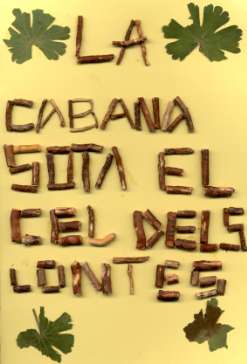 LA
CABANA
SOTA EL
CEL DELS
CONTES